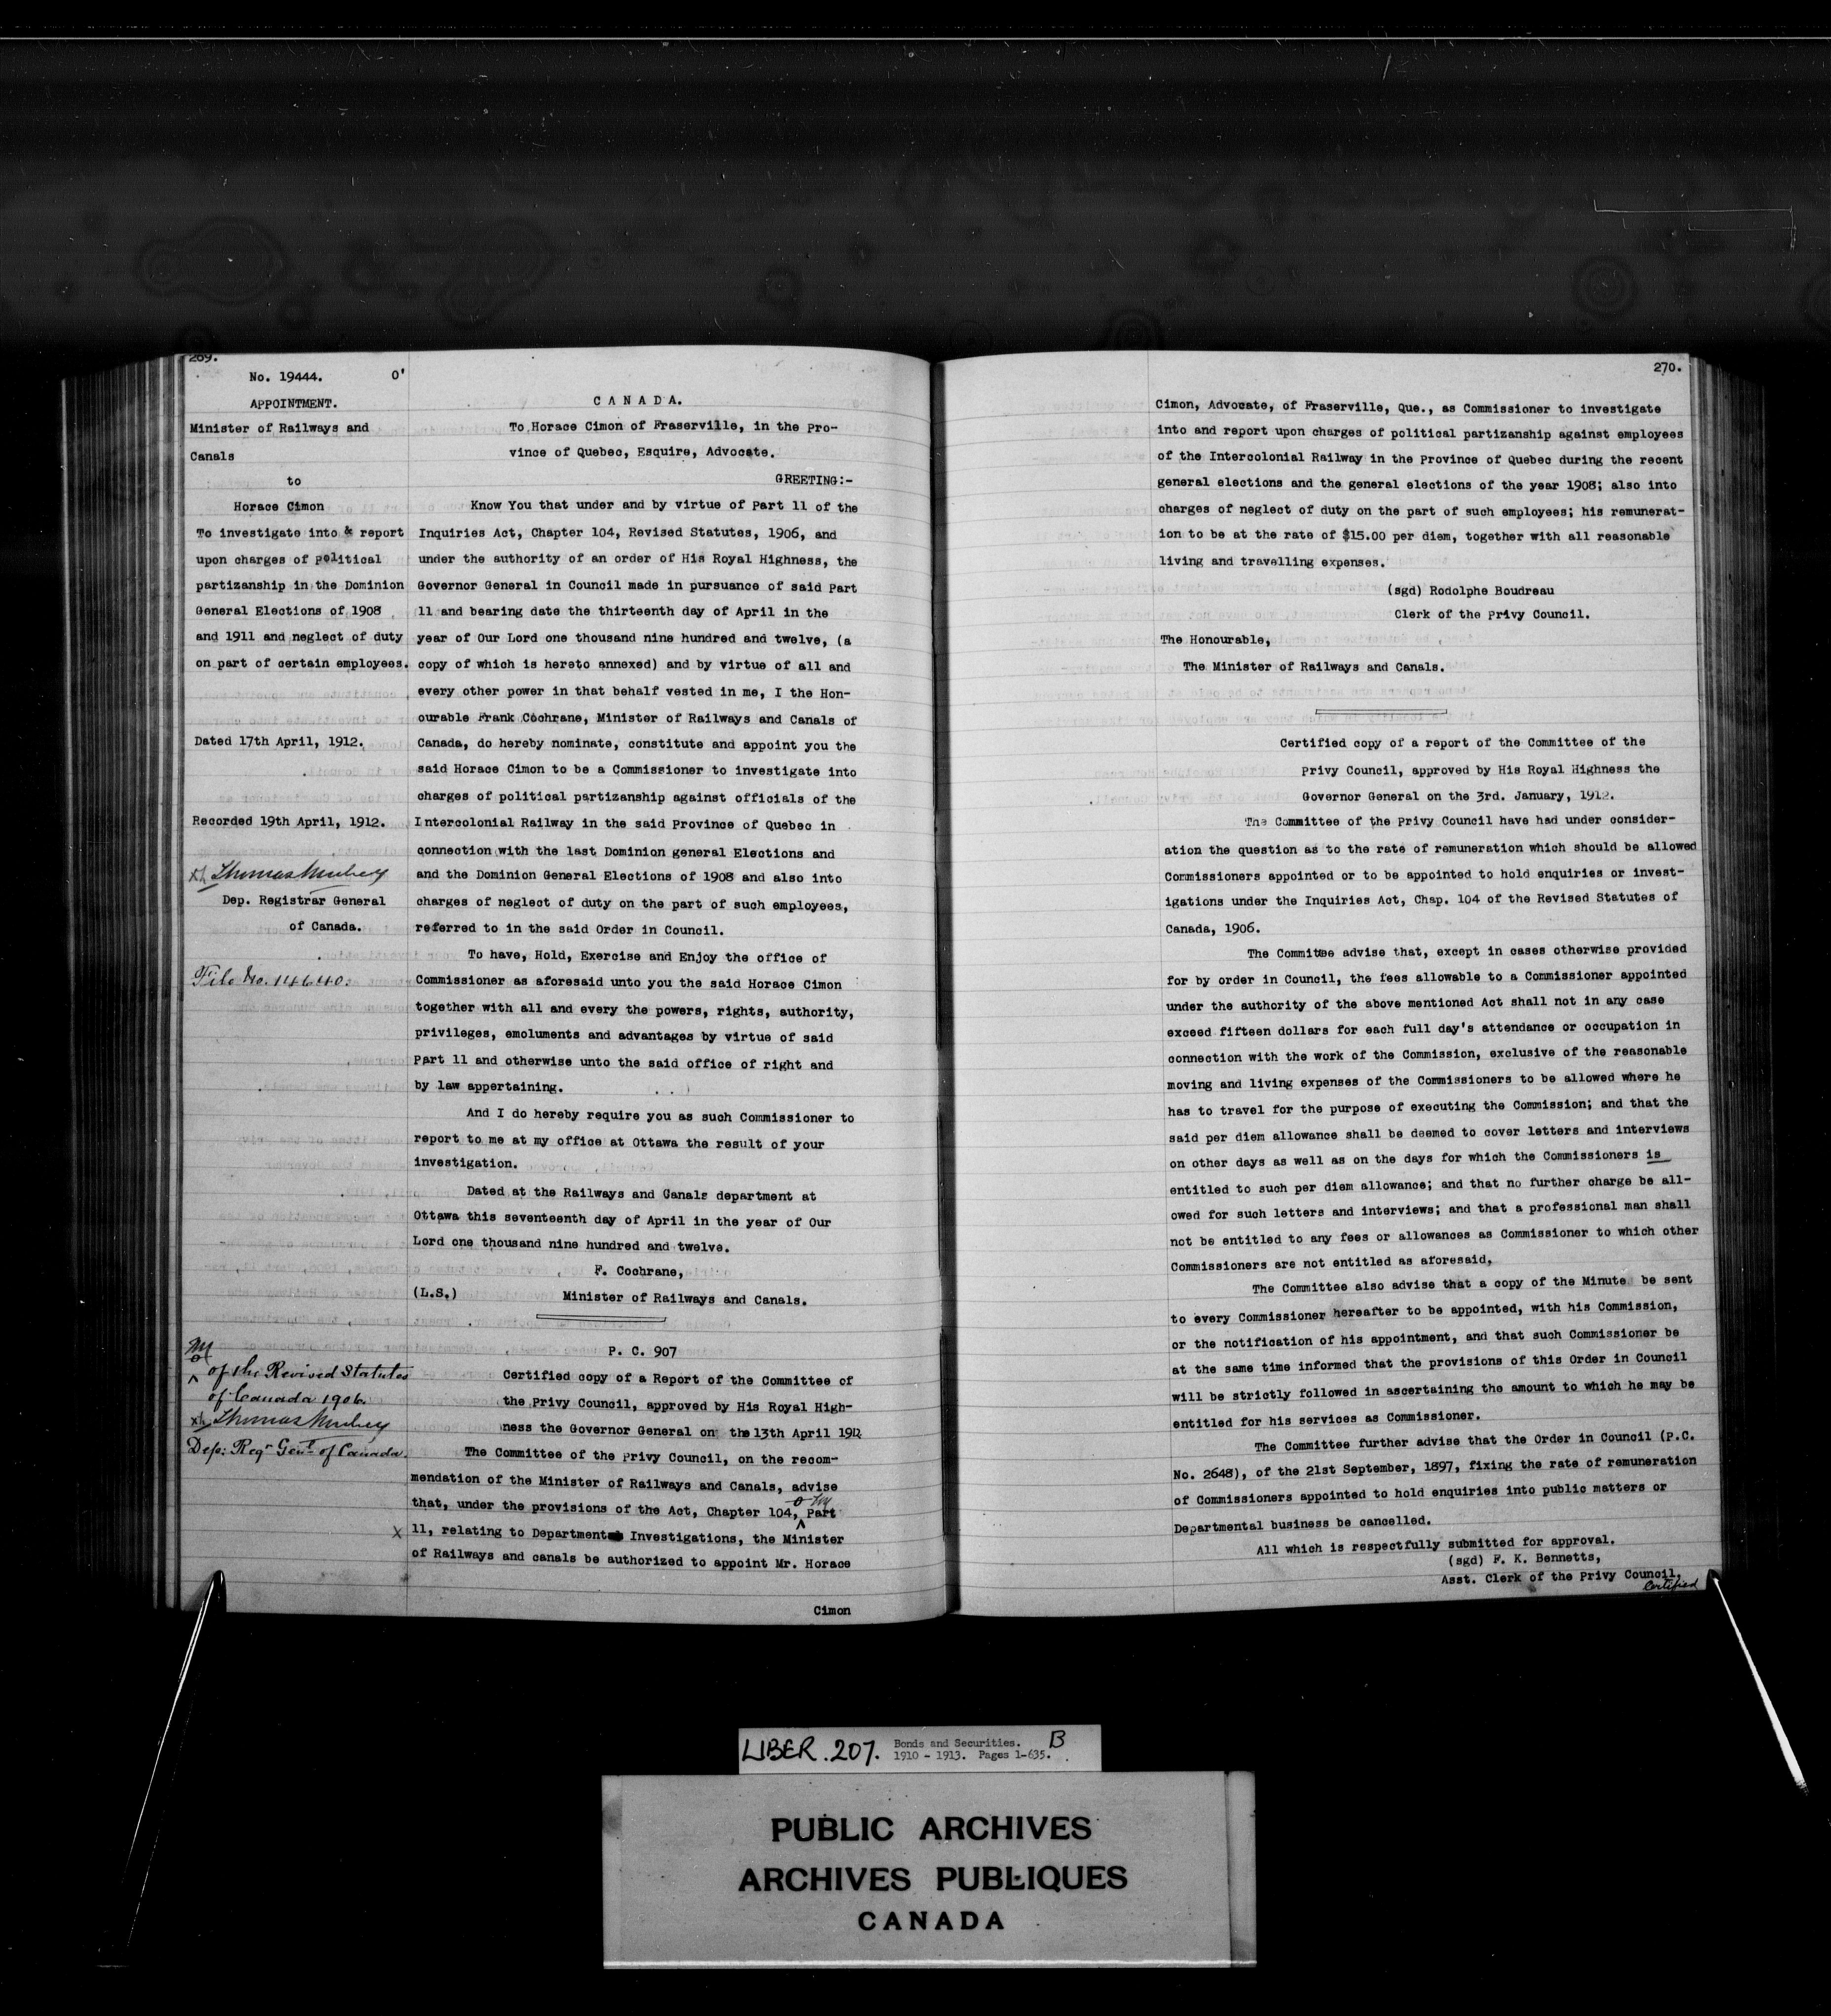 269.
No. 19444. O'
APPOINTMENT.
Minister of Railways and
Canals
to
Horace Cimon
To investigate into & report
upon charges of political
partizanship in the Dominion
General Elections of 1908
and 1911 and neglect of duty
on part of certain employees.
Dated 17th April, 1912.
Recorded 19th April, 1912.
Thomas Mulvey
Dep. Registrar General
of Canada.
File No. 14640.
of the Revised Statutes
of Canada 1906.
Thomas Mulvey
Dep: Regr Genl of Canada.
CANADA.
To Horace Cimon of Fraserville, in the Pro-
vince of Quebec, Esquire, Advocate.
GREETING:-
Know You that under and by virtue of Part 11 of the
Inquiries Act, Chapter 104, Revised Statutes, 1906, and
under the authority of an order of His Royal Highness, the
Governor General in Council made in pursuance of said Part
11 and bearing date the thirteenth day of April in the
year of Our Lord one thousand nine hundred and twelve, (a
copy of which is hereto annexed) and by virtue of all and
every other power in that behalf vested in me, I the Hon-
ourable Frank Cochrane, Minister of Railways and Canals of
Canada, do hereby nominate, constitute and appoint you the
said Horace Cimon to be a Commissioner to investigate into
charges of political partizanship against officials of the
Intercolonial Railway in the said Province of Quebec in
connection with the last Dominion general Elections and
and the Dominion General Elections of 1908 and also into
charges of neglect of duty on the part of such employees,
referred to in the said Order in Council.
To have, Hold, Exercise and Enjoy the office of
Commissioner as aforesaid unto you the said Horace Cimon
together with all and every the powers, rights, authority,
privileges, emoluments and advantages by virtue of said
Part 11 and otherwise unto the said office of right and
by law appertaining.
And I do hereby require you as such Commissioner to
report to me at my office at Ottawa the result of your
investigation.
Dated at the Railways and Canals department at
Ottawa this seventeenth day of April in the year of Our
Lord one thousand nine hundred and twelve.
F. Cochrane,
(L.S.) Minister of Railways and Canals.
P. C. 907
Certified copy of a Report of the Committee of
the Privy Council, approved by His Royal High-
ness the Governor General on the 13th April 1912
The Committee of the Privy Council, on the recom-
mendation of the Minister of Railways and Canals, advise
that, under the provisions of the Act, Chapter 104, Part
X 11, relating to Department Investigations, the Minister
of Railways and canals be authorized to appoint Mr. Horace
Cimon
270.
Cimon, Advocate, of Fraserville, Que., as Commissioner to investigate
into and report upon charges of political partizanship against employees
of the Intercolonial Railway in the Province of Quebec during the recent
general elections and the general elections of the year 1908; also into
charges of neglect of duty on the part of such employees; his remunerat-
ion to be at the rate of $15.00 per diem, together with all reasonable
living and travelling expenses.
(sgd) Rodolphe Boudreau
Clerk of the Privy Council.
The Honourable,
The Minister of Railways and Canals.
Certified copy of a report of the Committee of the
Privy Council, approved by His Royal Highness the
Governor General on the 3rd. January, 1912.
The Committee of the Privy Council have had under consider-
ation the question as to the rate of remuneration which should be allowed
Commissioners appointed or to be appointed to hold enquiries or invest-
igations under the Inquiries Act, Chap. 104 of the Revised Statutes of
Canada, 1906.
The Committee advise that, except in cases otherwise provided
for by order in Council, the fees allowable to a Commissioner appointed
under the authority of the above mentioned Act shall not in any case
exceed fifteen dollars for each full day's attendance or occupation in
connection with the work of the Commission, exclusive of the reasonable
moving and living expenses of the Commissioners to be allowed where he
has to travel for the purpose of executing the Commission; and that the
said per diem allowance shall be deemed to cover letters and interviews
on other days as well as on the days for which the Commissioners is
entitled to such per diem allowance; and that no further charge be all-
owed for such letters and interviews; and that a professional man shall
not be entitled to any fees or allowances as Commissioner to which other
Commissioners are not entitled as aforesaid.
The Committee also advise that a copy of the Minute be sent
to every Commissioner hereafter to be appointed, with his Commission,
or the notification of his appointment, and that such Commissioner be
at the same time informed that the provisions of this Order in Council
will be strictly followed in ascertaining the amount to which he may be
entitled for his services as Commissioner.
The Committee further advise that the Order in Council (P.C.
No. 2648), of the 21st September, 1897, fixing the rate of remuneration
of Commissioners appointed to hold enquiries into public matters or
Departmental business be cancelled.
All which is respectfully submitted for approval.
(sgd) F. K. Bennetts,
Asst. Clerk of the Privy Council.
Certified
LIBER. 207. Bonds and Securities. B
1910 - 1913. Pages 1-635.
PUBLIC ARCHIVES
ARCHIVES PUBLIQUES
CANADA